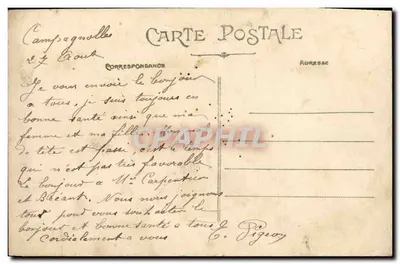 CARTE POSTALE
CORRESPONDANCE
ADRESSE
Campagnolles
27 Aout
Je vous envoie le bonjour
a tous, je suis toujours en
bonne santé ainsi que ma
femme et ma fille
de tête est passé, c'est le temps
qui n'est pas très favorable
le bonjour a Mr Carpentier
et Bréant. Nous nous joignons
tout pour vous souhaiter le
bonjour et bonne santé a tous
Cordialement a vous
Pigeon
CPAPHIL